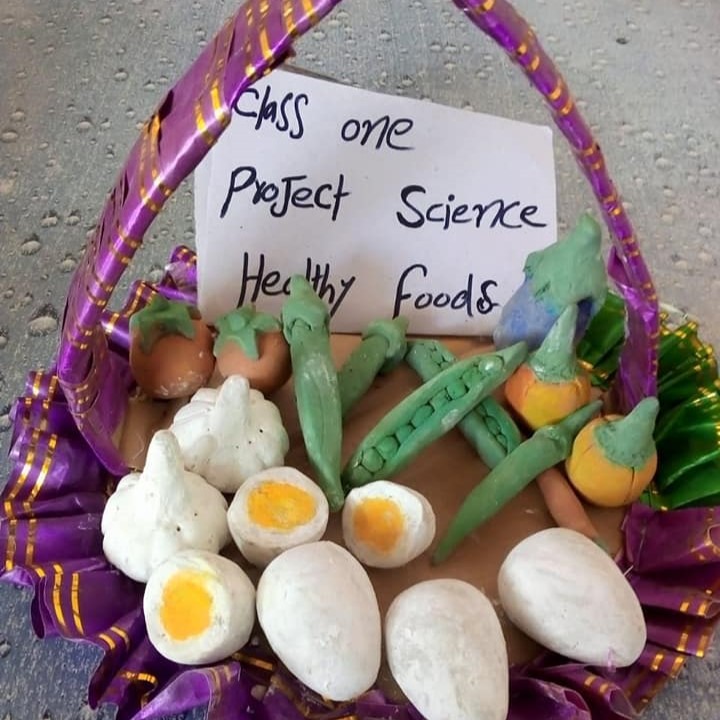 Class one
Project Science
Healthy foods